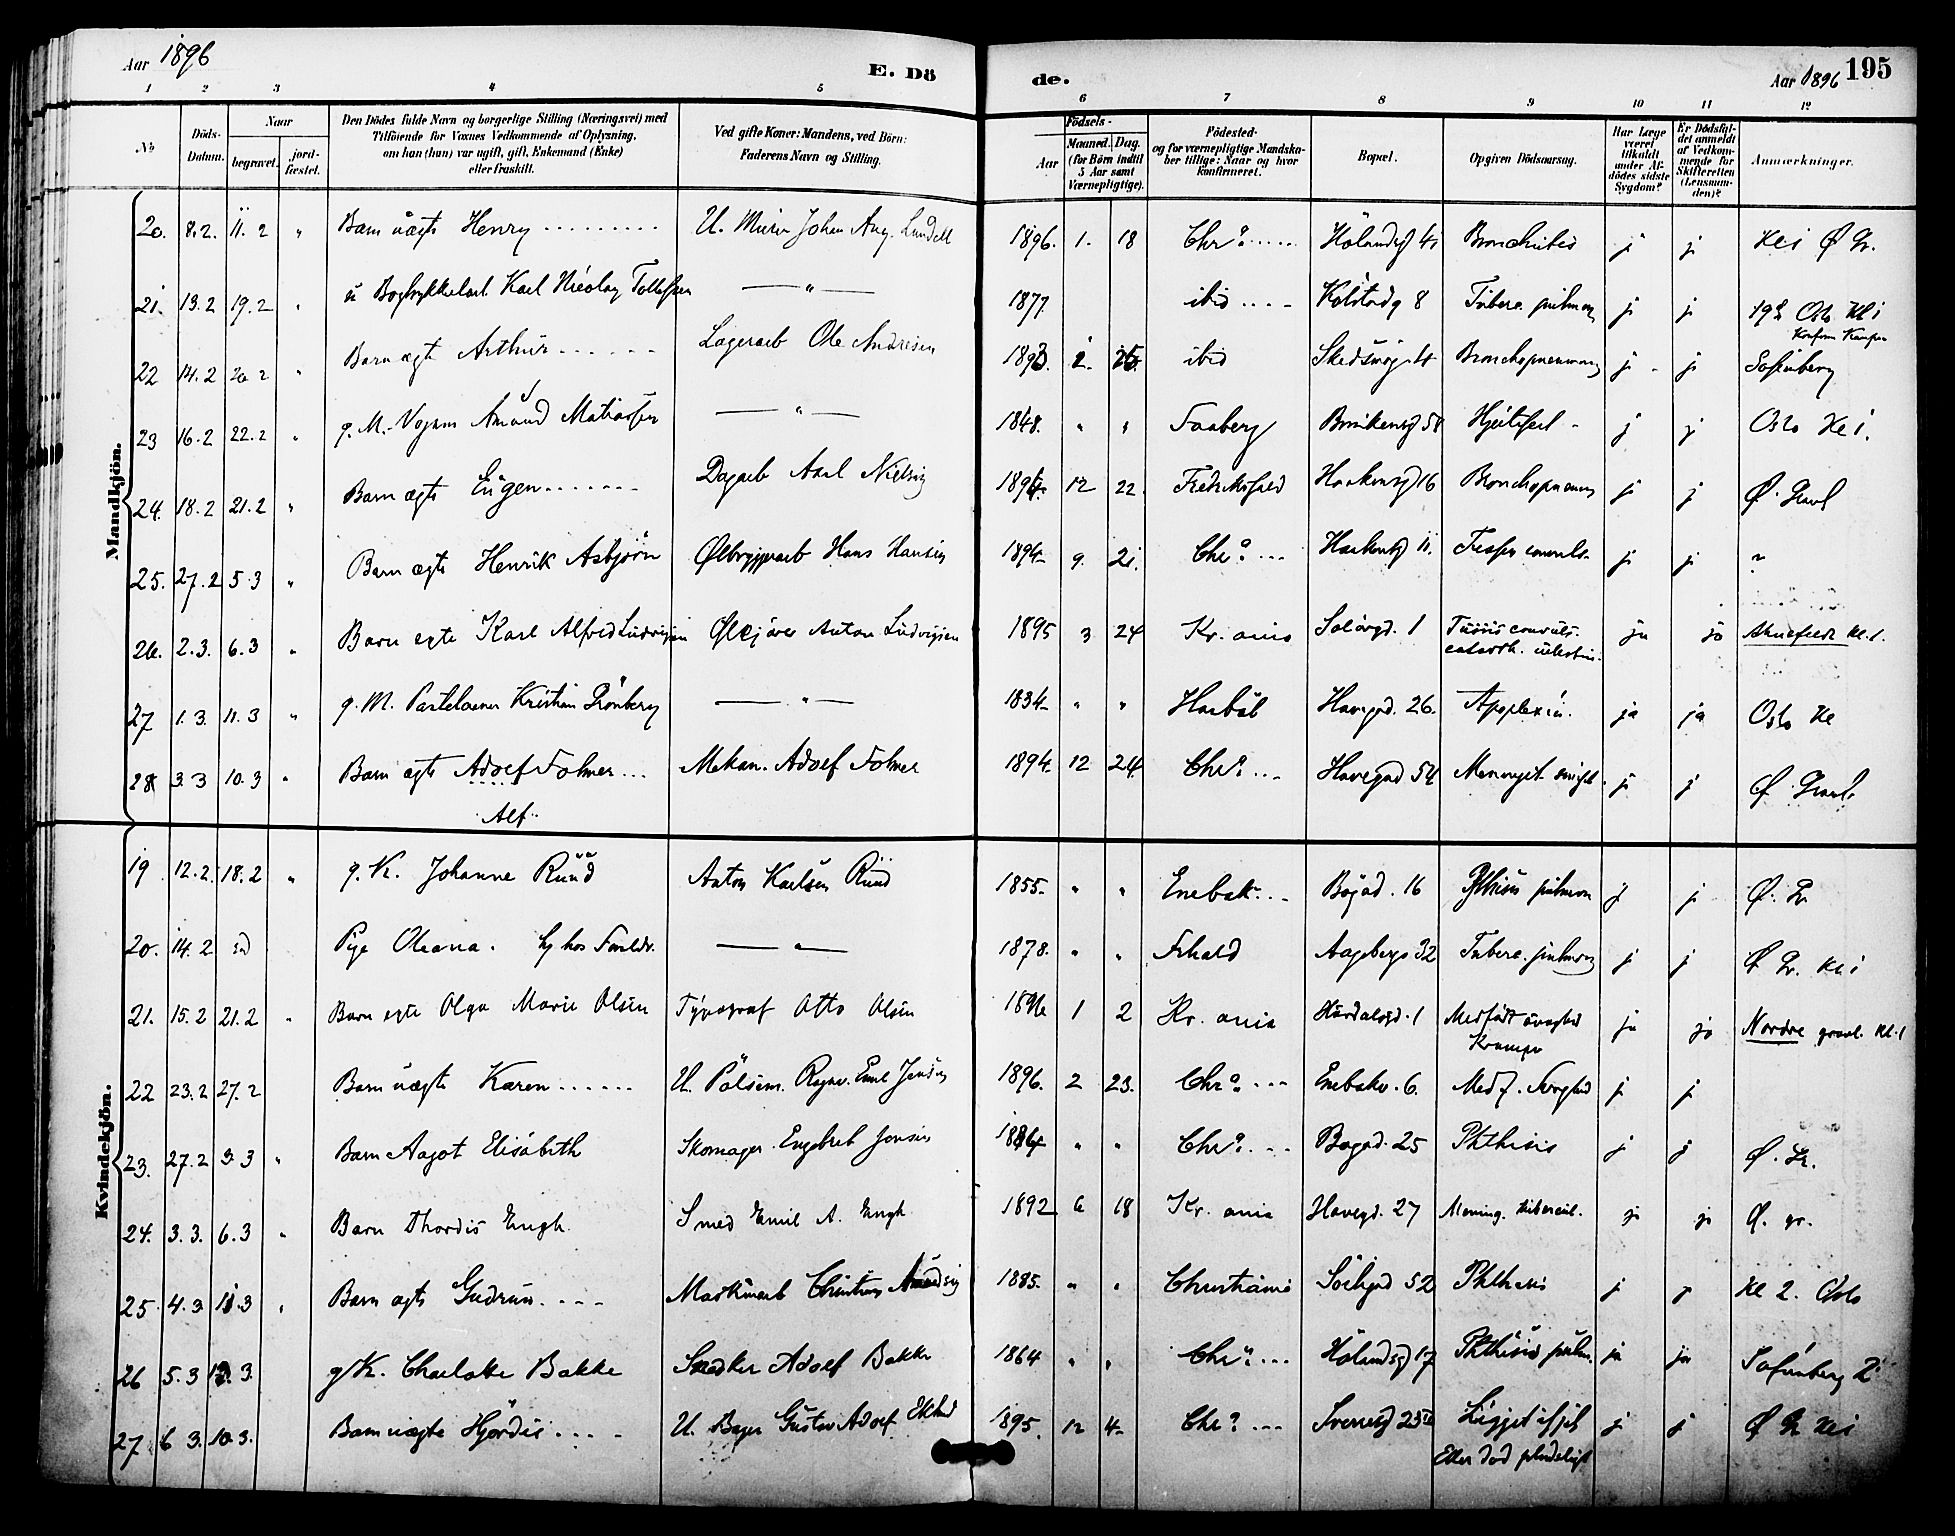 Aar 1896
E. Dö
de.
Aar 1896
195
1 2 3 4 5 6 7 8 9 10 11 12
No
Döds-Datum.
Naar
begravet.
jord-fæstet.
Den Dödes fulde Navn og borgerlige Stilling (Næringsvei) med
Tilföiende for Voxnes Vedkommende af Oplysning,
om han (hun) var ugift, gift, Enkemand (Enke)
eller fraskilt.
Ved gifte Koner: Mandens, ved Börn:
Faderens Navn og Stilling.
Födsels-
Aar
Maaned. Dag.
(for Börn indtil
5 Aar samt
Værnepligtige).
Födested
og for værnepligtige Mandska-
ber tillige: Naar og hvor
konfirmeret.
Bopæl.
Opgiven Dödsaarsag.
Har Læge
været
tilkaldt
under Af-
dödes sidste
Sygdom?
Er Dödsfal-
det anmeldt
af Vedkom-
mende for
Skifteretten
(Lensman-
den)?
Anmærkninger.
Mandkjön.
20. 8.2. 11.2 " Barn uægte Henry U. Murer Johan Aug. Lundell 1896. 1. 18 Chra. Hölandsg 41 Bronchites j j Kl 1 Ø Gr.
21. 13.2 19.2 " u Karl Nicolay Tollefsen " 1877. ibid Kolstadg 8 Tuberc. pulmon j j 198 Oslo Kl 1
22 14.2 20.2 " Barn ægte Arthur Lagerarb Ole Andresen 1893. 2. ibid Bronchopneumony j j Sofienberg
23 16.2 22.2 " g. M. Vognm Amund Matiassen " 1848. " " Faaberg Hjertefeil j j Oslo Kl 1.
24. 18.2 21.2 " Barn ægte Eugen Dagarb Axel Nielsen 12 22. Fredrikshald Haakonsg 16 Bronchopneumon j j Ø. Gravl
25. 27.2 5.3 " Barn ægte Henrik Asbjörn Ølbryggerarb Hans Hansen 1894 9. 21. Chra. Haakonsg 11. j j "
26. 2.3. 6.3 " Barn egte Karl Alfred Ludvigsen Ølkjører Anton Ludvigsen 1895 3 24 Kr. ania Solörgd. 1 Tussis convuls.
catarrh. intestin. ja ja Kl. 1.
27 1.3. 11.3 " g. M. Kristian Grönberg " 1834 " " Havegad. 26. Apoplexia. ja ja Oslo Kl
28 3.3 10.3 " Barn ægte Adolf Folmer Mekan. Adolf Folmer 1894. 12 24 Chra. Havegad 54 j j Ø Gravl.
Alf.
Kvindekjön.
19 12.2. 18.2 " g. K. Johanne Ruud Anton Karlsen Ruud 1855. " " Enebak Bögad. 16 Phthisis pulmon j j Ø. Gr
20. 14.2 Pige Oleana. hj hos Foreldr. " 1878. " " Frhald Aagebergs 32 Tuberc. pulmon j j Ø Gr. Kl 1
21. 15.2 21.2 " Barn egte Olga Marie Olsen Typograf Otto Olsen 1896 1 2 Kr. ania Medfödt svaghed
Krampe ja ja Nordre gravl. Kl. 1
22 23.2 27.2 Barn uægte Karen U. Pölsem. Ragnv. Emil Jensen 1896. 2 23. Chra. Enebakv. 6. Medf. Svaghed j j
23. 27.2 3.3 " Barn Aagot Elisabeth Skomager Engebret Jensen 1884 " " Chra. Bogad. 25 Phthisis j j Ø. Gr.
24. 3.3. 6.3 " Barn Thordis Engh. Smed Emil A. Engh. 1892 6 18 Kr. ania Havegd. 27 Mening. tubercul. ja ja Ø. gr.
25. 4.3 11.3 " Barn ægte Gudrun Maskinarb Christian Amundsen 1885. " " Christiania 52 Phthisis j j Kl 2. Oslo
26 5.3 12.3. g K. Charlotte Bakke Snedker Adolf Bakke 1864 " " Chra. Hölandsg 17 Phthisis pulm. ja ja Sofienberg
27. 6.3. 10.3. Barn uægte Hjördis U. Bager Gustav Adolf 1895. 12 4 Chra. Sverresg Ligget ihjel
Eller död pludseligt j j Ø Gr Kl 1